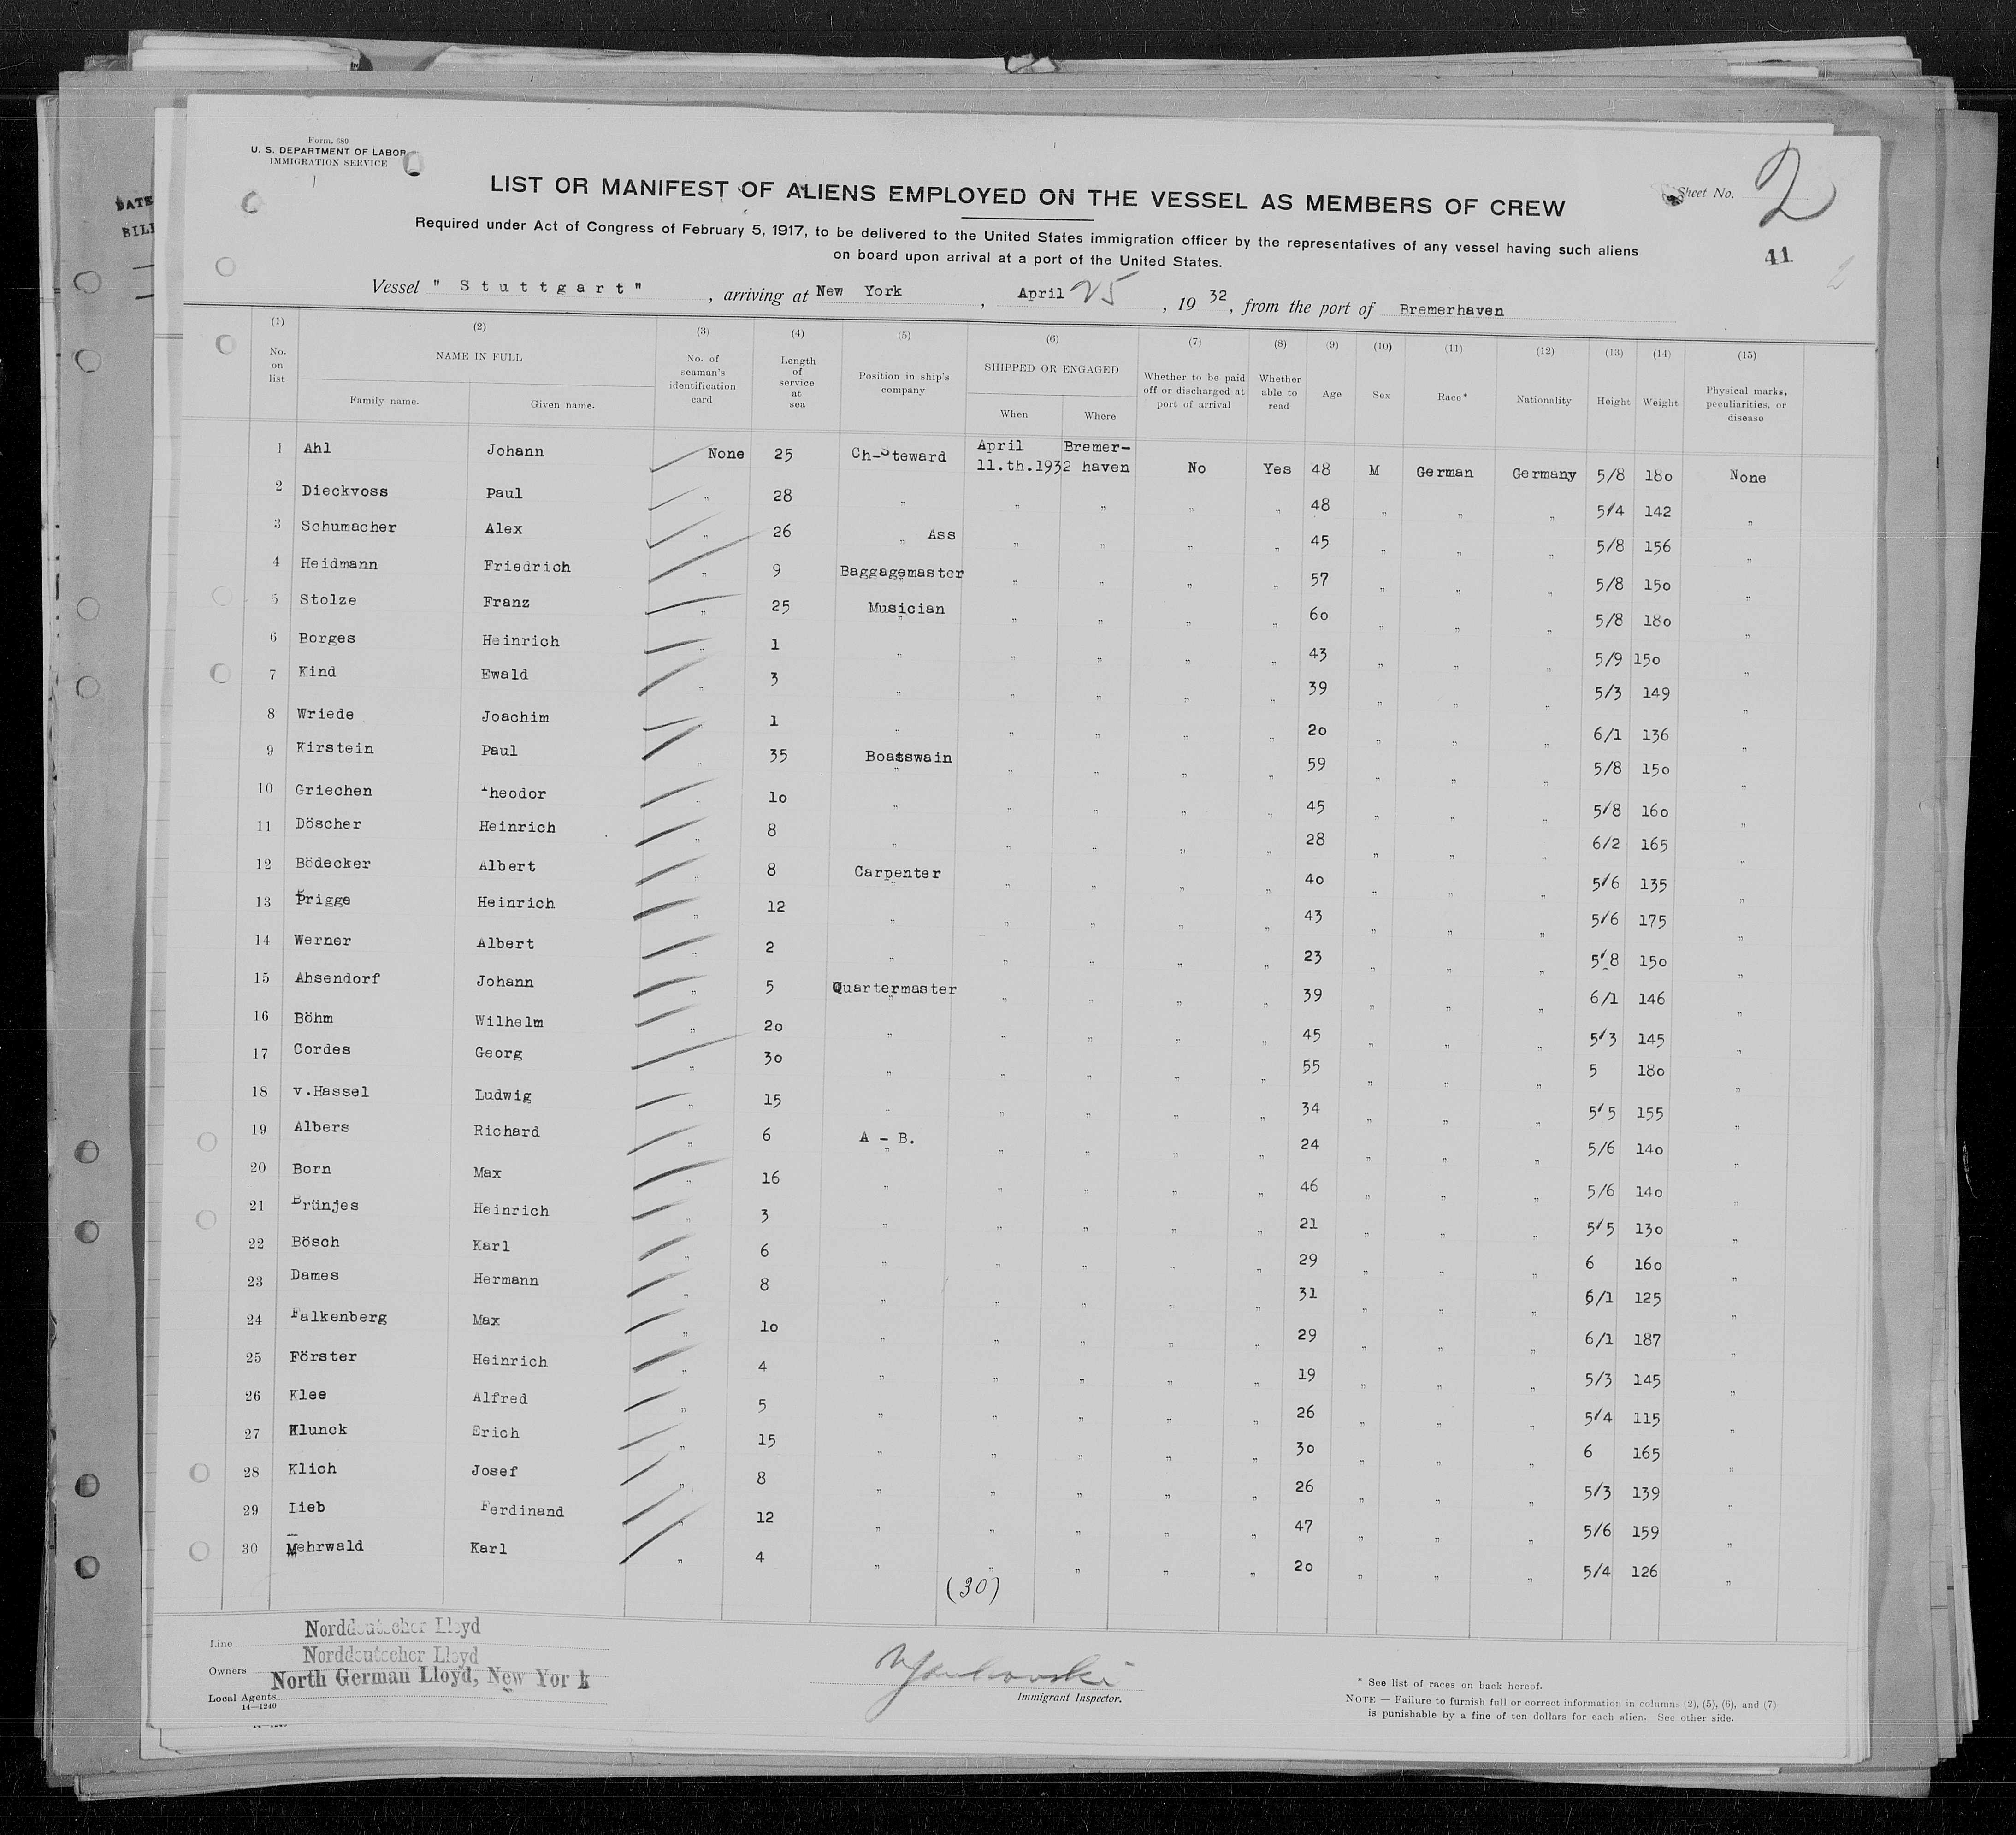 Form. 680
U. S. DEPARTMENT OF LABOR
IMMIGRATION SERVICE
DATE
BILL
LIST OR MANIFEST OF ALIENS EMPLOYED ON THE VESSEL AS MEMBERS OF CREW
Sheet No. 2
Required under Act of Congress of February 5, 1917, to be delivered to the United States immigration officer by the representatives of any vessel having such aliens
on board upon arrival at a port of the United States.
41
Vessel " Stuttgart" , arriving at New York , April 25 , 19 32 , from the port of Bremerhaven
(1) (2) (3) (4) (5) (6) (7) (8) (9) (10) (11) (12) (13) (14) (15)
No. on list NAME IN FULL Family name. Given name. No. of seaman's identification card Length of service at sea Position in ship's company SHIPPED OR ENGAGED When Where Whether to be paid off or discharged at port of arrival Whether able to read Age Sex Race* Nationality Height Weight Physical marks, peculiarities, or disease
1 Ahl Johann None 25 Ch-Steward April 11.th.1932 Bremer-haven No Yes 48 M German Germany 5/8 180 None
2 Dieckvoss Paul " 28 " " " " " 48 " " " 5/4 142 "
3 Schumacher Alex " 26 " Ass " " " " 45 " " " 5/8 156 "
4 Heidmann Friedrich " 9 Baggagemaster " " " " 57 " " " 5/8 150 "
5 Stolze Franz " 25 Musician " " " " 60 " " " 5/8 180 "
6 Borges Heinrich " 1 " " " " " 43 " " " 5/9 150 "
7 Kind Ewald " 3 " " " " " 39 " " " 5/3 149 "
8 Wriede Joachim " 1 " " " " " 20 " " " 6/1 136 "
9 Kirstein Paul " 35 Boatswain " " " " 59 " " " 5/8 150 "
10 Griechen Theodor " 10 " " " " " 45 " " " 5/8 160 "
11 Döscher Heinrich " 8 " " " " " 28 " " " 6/2 165 "
12 Bödecker Albert " 8 Carpenter " " " " 40 " " " 5/6 135 "
13 Prigge Heinrich " 12 " " " " " 43 " " " 5/6 175 "
14 Werner Albert " 2 " " " " " 23 " " " 5/8 150 "
15 Ahsendorf Johann " 5 Quartermaster " " " " 39 " " " 6/1 146 "
16 Böhm Wilhelm " 20 " " " " " 45 " " " 5/3 145 "
17 Cordes Georg " 30 " " " " " 55 " " " 5 180 "
18 v.Hassel Ludwig " 15 " " " " " 34 " " " 5/5 155 "
19 Albers Richard " 6 A - B. " " " " 24 " " " 5/6 140 "
20 Born Max " 16 " " " " " 46 " " " 5/6 140 "
21 Brünjes Heinrich " 3 " " " " " 21 " " " 5/5 130 "
22 Bösch Karl " 6 " " " " " 29 " " " 6 160 "
23 Dames Hermann " 8 " " " " " 31 " " " 6/1 125 "
24 Falkenberg Max " 10 " " " " " 29 " " " 6/1 187 "
25 Förster Heinrich " 4 " " " " " 19 " " " 5/3 145 "
26 Klee Alfred " 5 " " " " " 26 " " " 5/4 115 "
27 Klunck Erich " 15 " " " " " 30 " " " 6 165 "
28 Klich Josef " 8 " " " " " 26 " " " 5/3 139 "
29 Lieb Ferdinand " 12 " " " " " 47 " " " 5/6 159 "
30 Mehrwald Karl " 4 " " " " " 20 " " " 5/4 126 "
(30)
Line Norddeutscher Lloyd
Owners Norddeutscher Lloyd
Local Agents North German Lloyd, New York
14—1240
Immigrant Inspector.
* See list of races on back hereof.
NOTE — Failure to furnish full or correct information in columns (2), (5), (6), and (7)
is punishable by a fine of ten dollars for each alien. See other side.